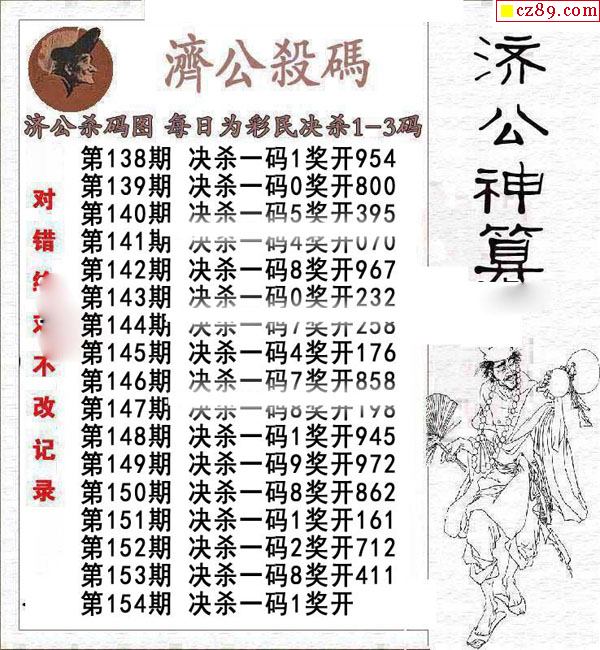 cz89.com
濟公殺碼
济公杀码图 每日为彩民决杀1-3码
第138期 决杀一码1奖开954
第139期 决杀一码0奖开800
第140期 决杀一码5奖开395
第141期 决杀一码4奖开070
第142期 决杀一码8奖开967
第143期 决杀一码0奖开232
第144期 决杀一码7奖开258
第145期 决杀一码4奖开176
第146期 决杀一码7奖开858
第147期 决杀一码8奖开198
第148期 决杀一码1奖开945
第149期 决杀一码9奖开972
第150期 决杀一码8奖开862
第151期 决杀一码1奖开161
第152期 决杀一码2奖开712
第153期 决杀一码8奖开411
第154期 决杀一码1奖开
对错不改记录
济公神算